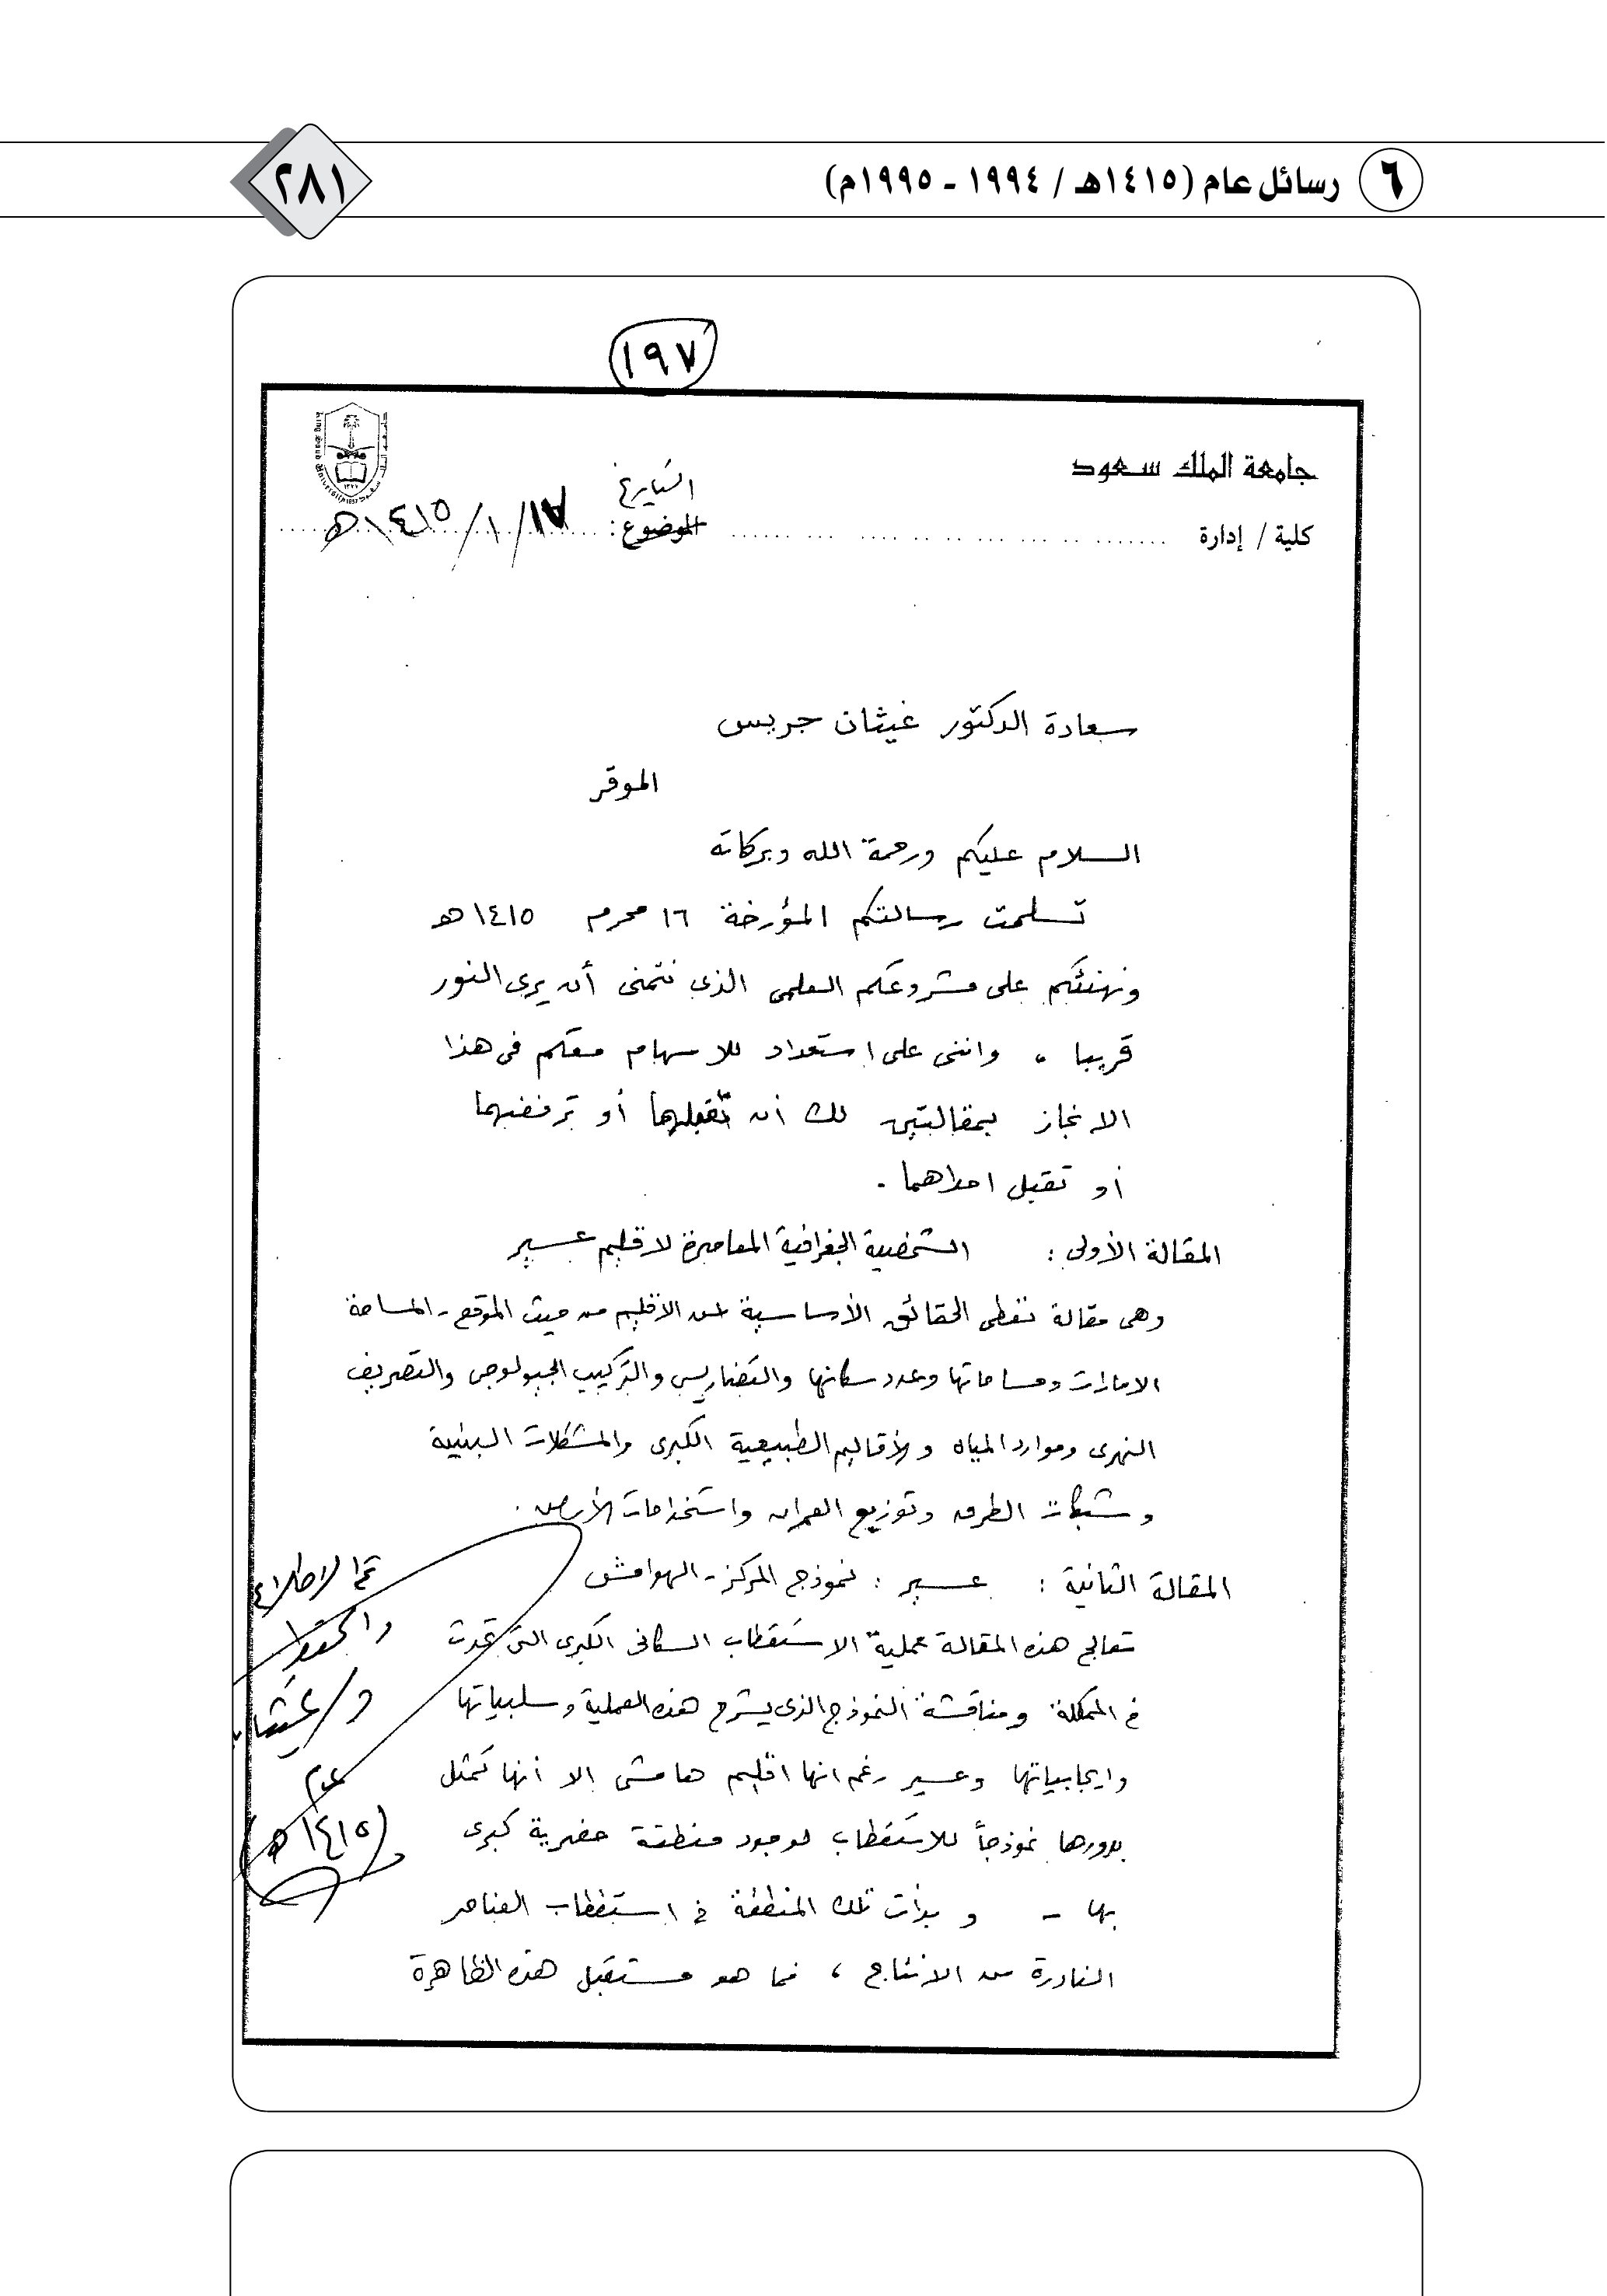 ٦ رسائل عام (١٤١٥هـ / ١٩٩٤ - ١٩٩٥م)
٢٨١
١٩٧
جامعة الملك سعود
التاريخ
كلية / إدارة
الموضوع : ١٧/١/١٤١٥هـ
سعادة الدكتور غيثان جريس
الموقر
السلام عليكم ورحمة الله وبركاته
تسلمت رسالتكم المؤرخة ١٦ محرم ١٤١٥هـ
ونهنئكم على مشروعكم العلمى الذى نتمنى أن يرى النور
قريبا ، وانني على استعداد للاسهام معكم فى هذا
الانجاز بمقالتين لك أن تقبلهما أو ترفضهما
أو تقبل احداهما .
المقالة الأولى : الشخصية الجغرافية المعاصرة لاقليم عسير
وهى مقالة تغطى الحقائق الأساسية عن الاقليم من حيث الموقع - المساحة
الامارات ومساحاتها وعدد سكانها والتضاريس والتركيب الجيولوجى والتصريف
النهرى وموارد المياه والأقاليم الطبيعية الكبرى والمشكلات البيئية
وشبكات الطرق وتوزيع العمران واستخدامات الأرض .
المقالة الثانية : عسير : نموذج المركز - الهوامش
تعالج هذه المقالة عملية الاستقطاب السكانى الكبرى التى تمت
فى المملكة ومناقشة النموذج الذى يشرح هذه العملية وسلبياتها
وايجابياتها وعسير رغم انها اقليم هامشى الا أنها تمثل
بدورها نموذجاً للاستقطاب لوجود منطقة حضرية كبرى
بها - وبدأت تلك المنطقة فى استقطاب العناصر
النادرة من الانتاج ، فما هو مستقبل هذه الظاهرة
تم الاطلاع
والحفظ
د/ غيثان
عام
(١٤١٥هـ)